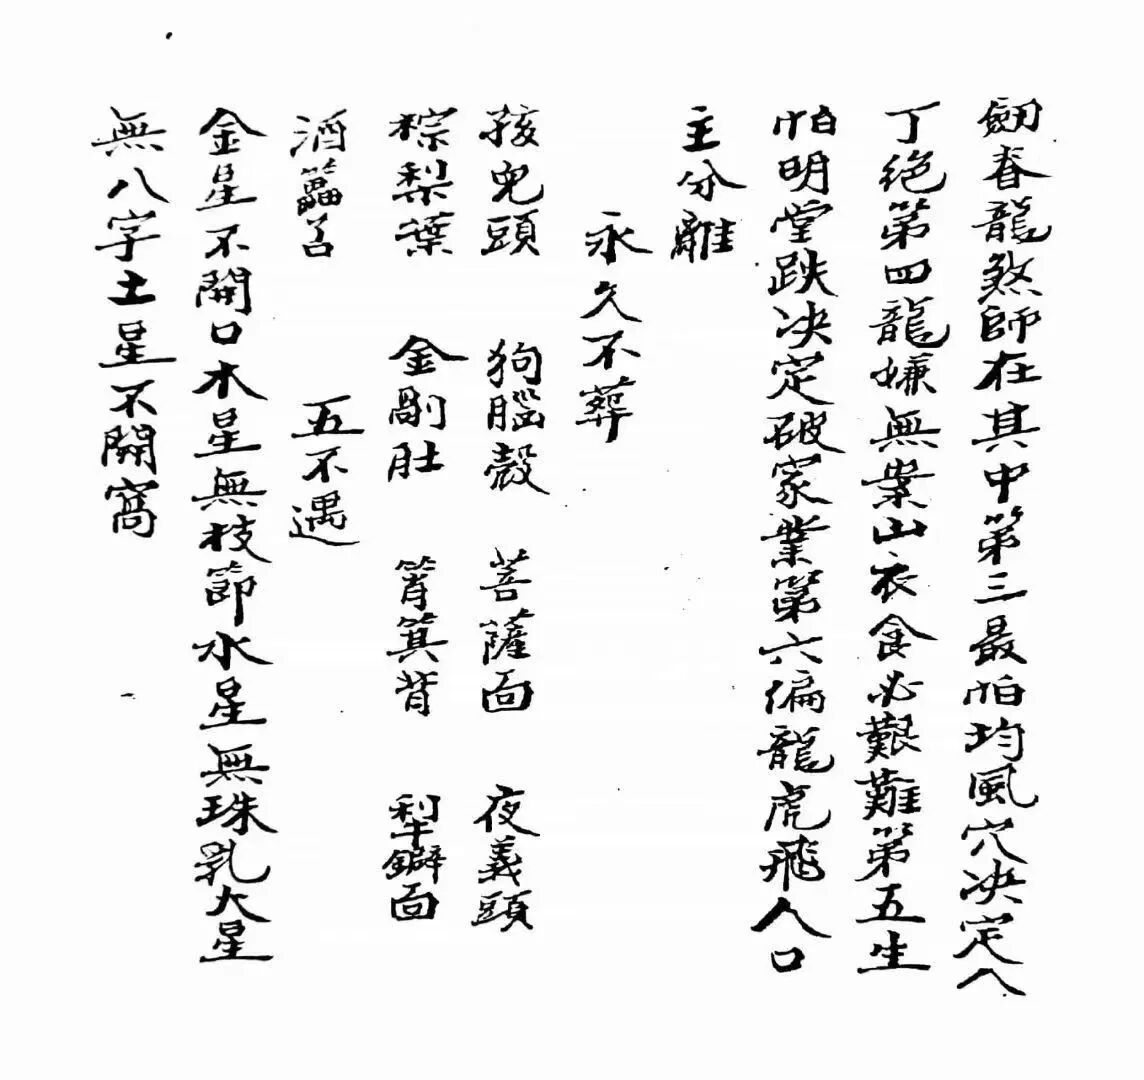 劔脊龍煞師在其中第三最怕均風穴决定人
丁绝第四龍嫌無業山衣食必艱難第五生
怕明堂跌决定破家業第六偏龍虎飛人口
主分離
永久不葬
孩兒頭 狗腦殼 菩薩面 夜義頭
棕梨葉 金剛肚 筲箕背 犁鐴面
酒 五不遇
金星不開口木星無枝節水星無珠乳火星
無八字土星不開窩